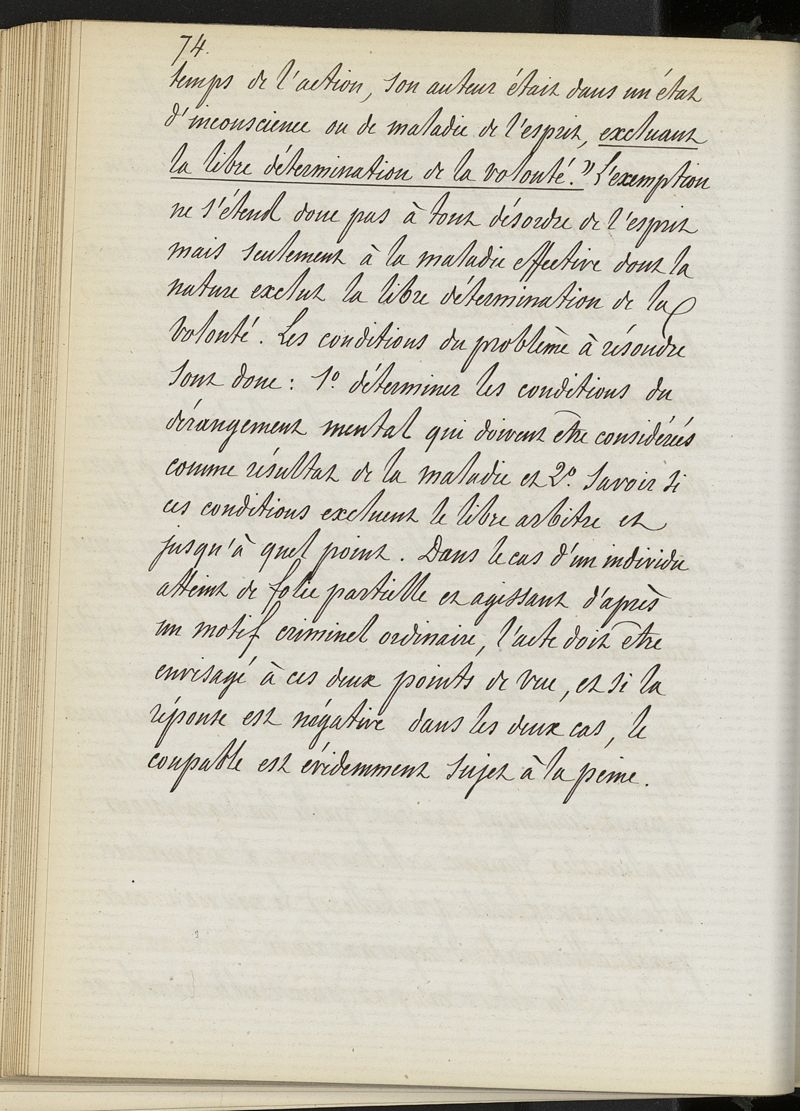 74.
temps de l'action, son auteur était dans un état
d'inconscience ou de maladie de l'esprit, excluant
la libre détermination de la volonté." L'exemption
ne s'étend donc pas à tout désordre de l'esprit
mais seulement à la maladie effective dont la
nature exclut la libre détermination de la
volonté. Les conditions du problème à résoudre
sont donc : 1º. déterminer les conditions du
dérangement mental qui doivent être considérées
comme résultat de la maladie et 2º. savoir si
ces conditions excluent le libre arbitre et
jusqu'à quel point. Dans le cas d'un individu
atteint de folie partielle et agissant d'après
un motif criminel ordinaire, l'acte doit être
envisagé à ces deux points de vue, et si la
réponse est négative dans les deux cas, le
coupable est évidemment sujet à la peine.